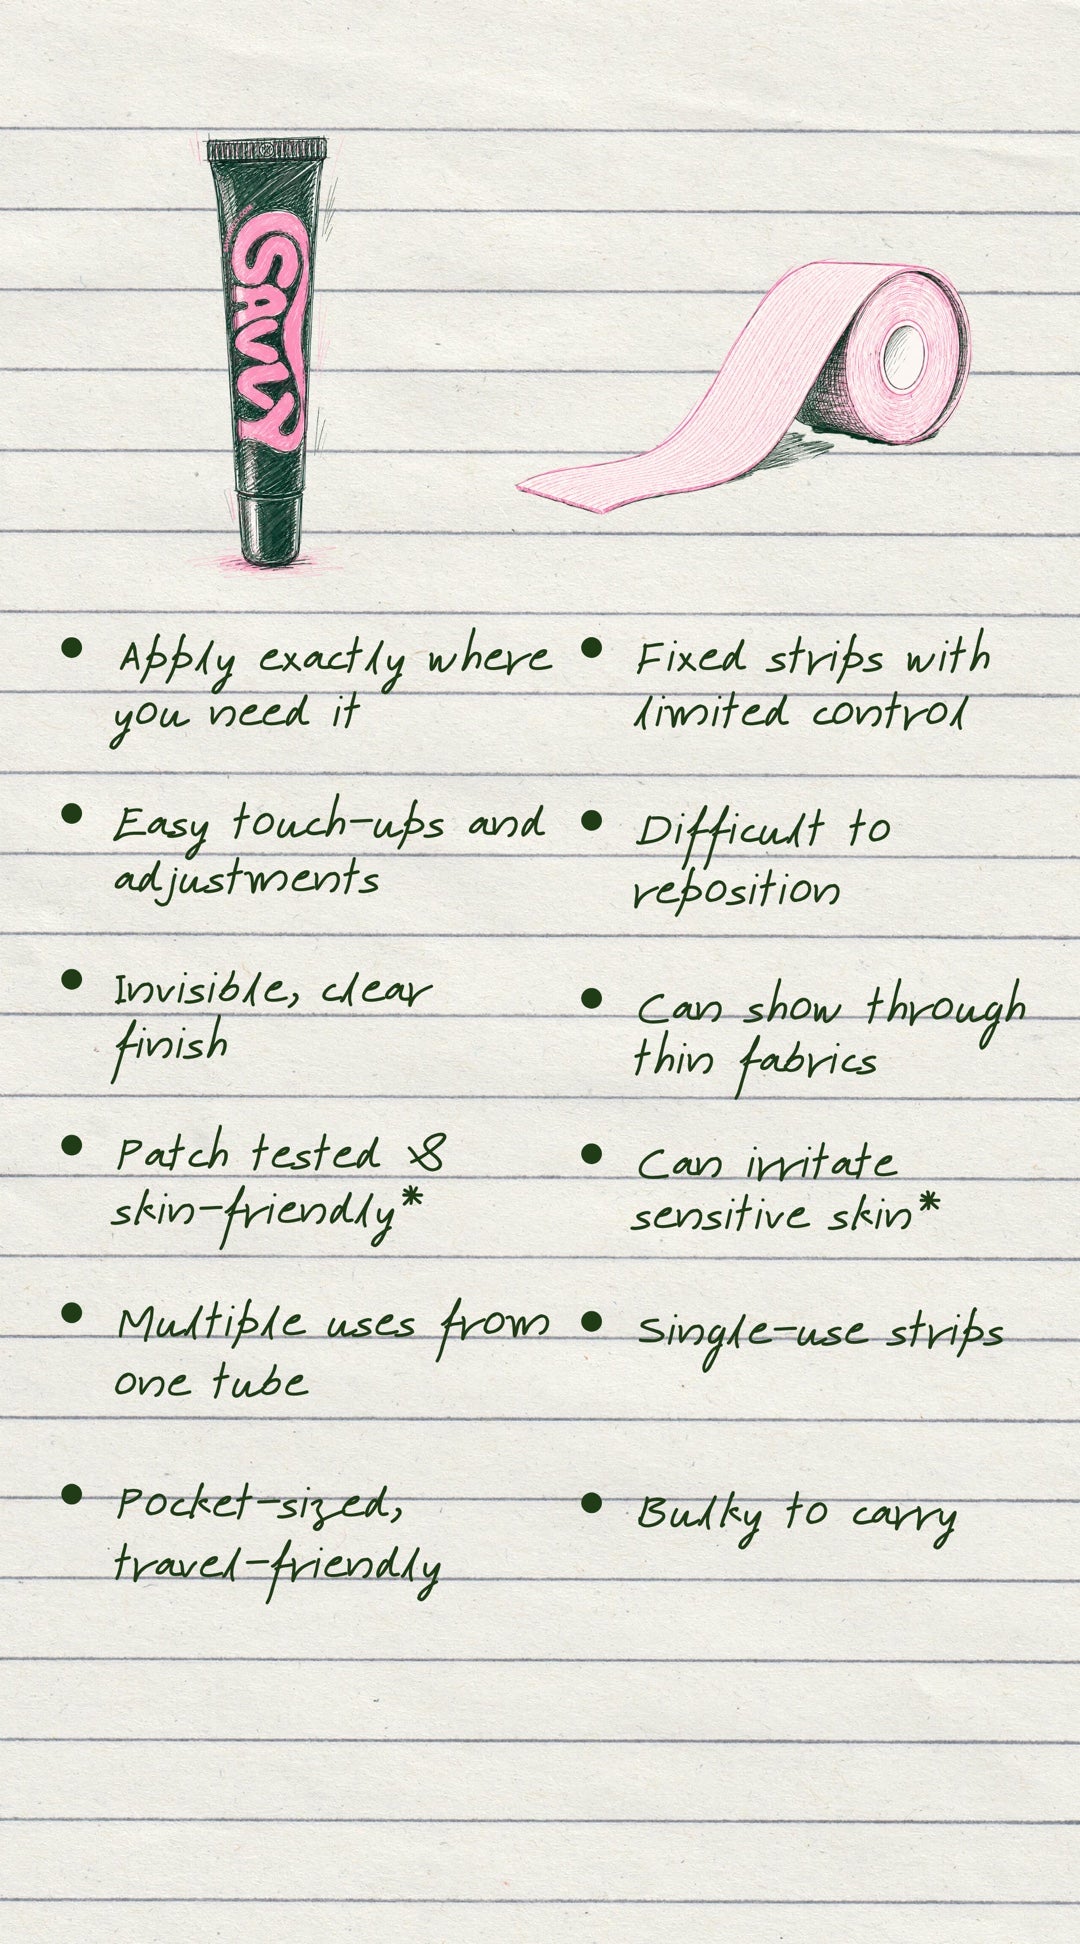 SAVVY
Apply exactly where
you need it
Easy touch-ups and
adjustments
Invisible, clear
finish
Patch tested &
skin-friendly*
Multiple uses from
one tube
Pocket-sized,
travel-friendly
Fixed strips with
limited control
Difficult to
reposition
Can show through
thin fabrics
Can irritate
sensitive skin*
Single-use strips
Bulky to carry